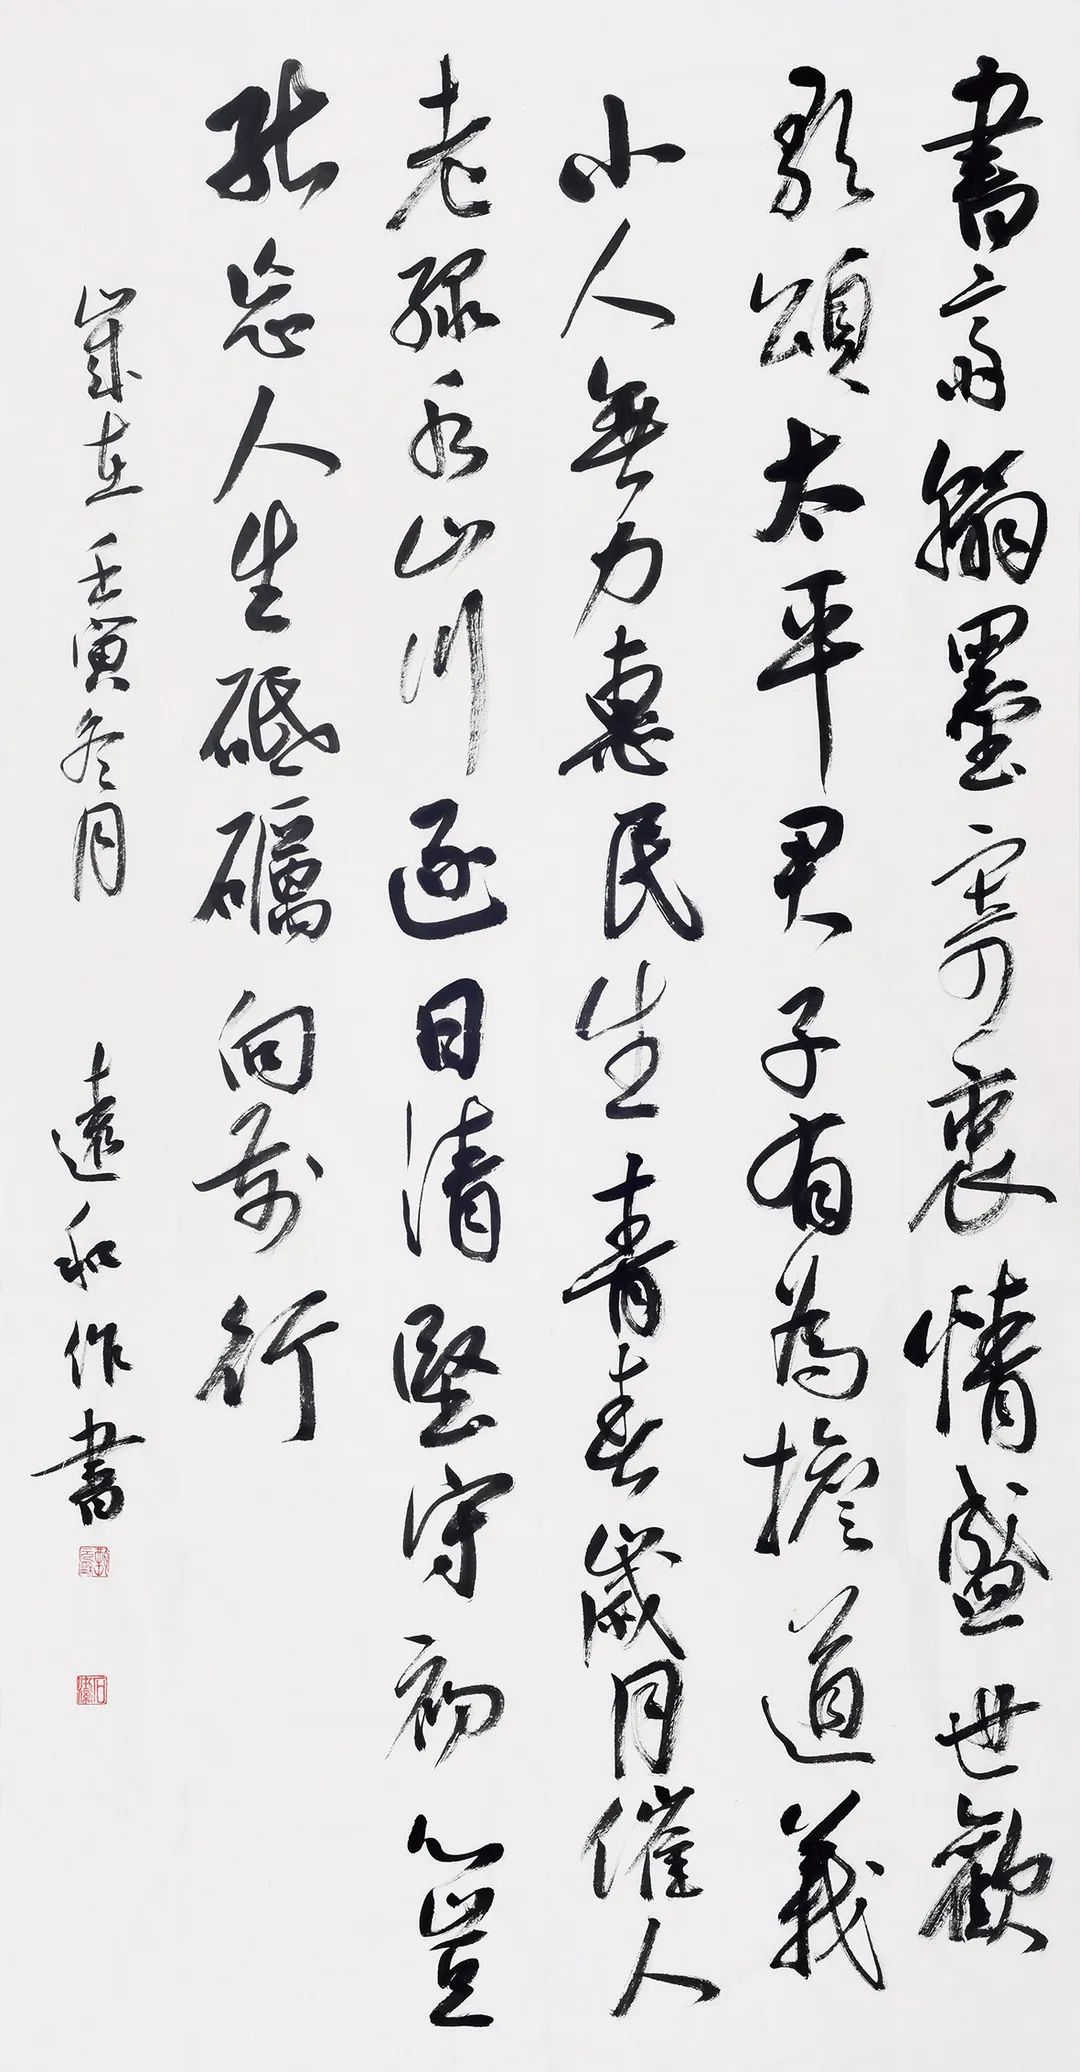 書斎翰墨寄衷情盛世歡
歌頌太平君子有為擔道義
小人無力惠民生青春歲月催人
老綠水山川逐日清堅守初心豈
能忘人生砥礪向前行
歲在壬寅冬月 遠和作書